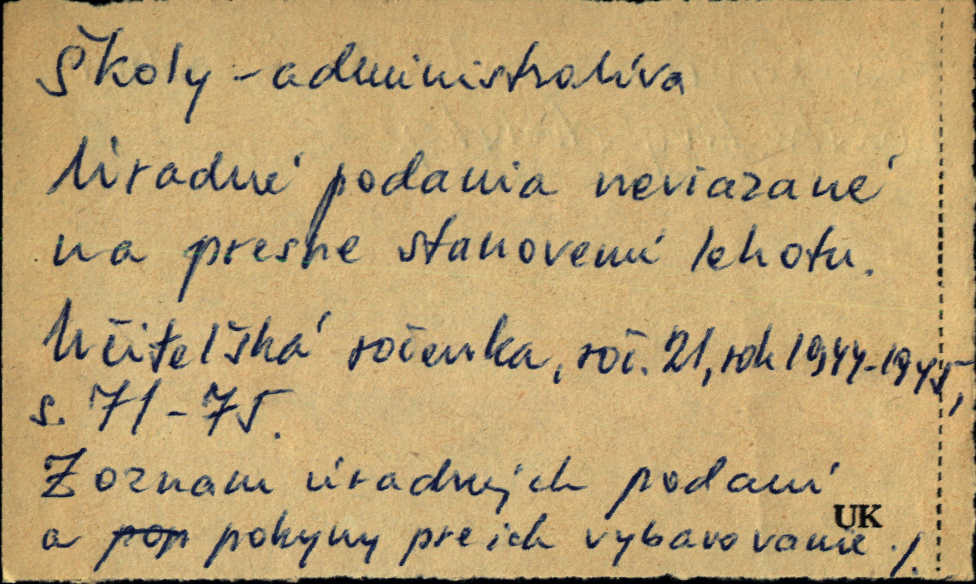 Školy - administratíva
Úradné podania neviazané
na presne stanovenú lehotu.
Učiteľská ročenka, roč. 21, rok 1944-1945,
s. 71-75.
Zoznam úradných podaní
UK
a pop pokyny pre ich vybavovanie ./.